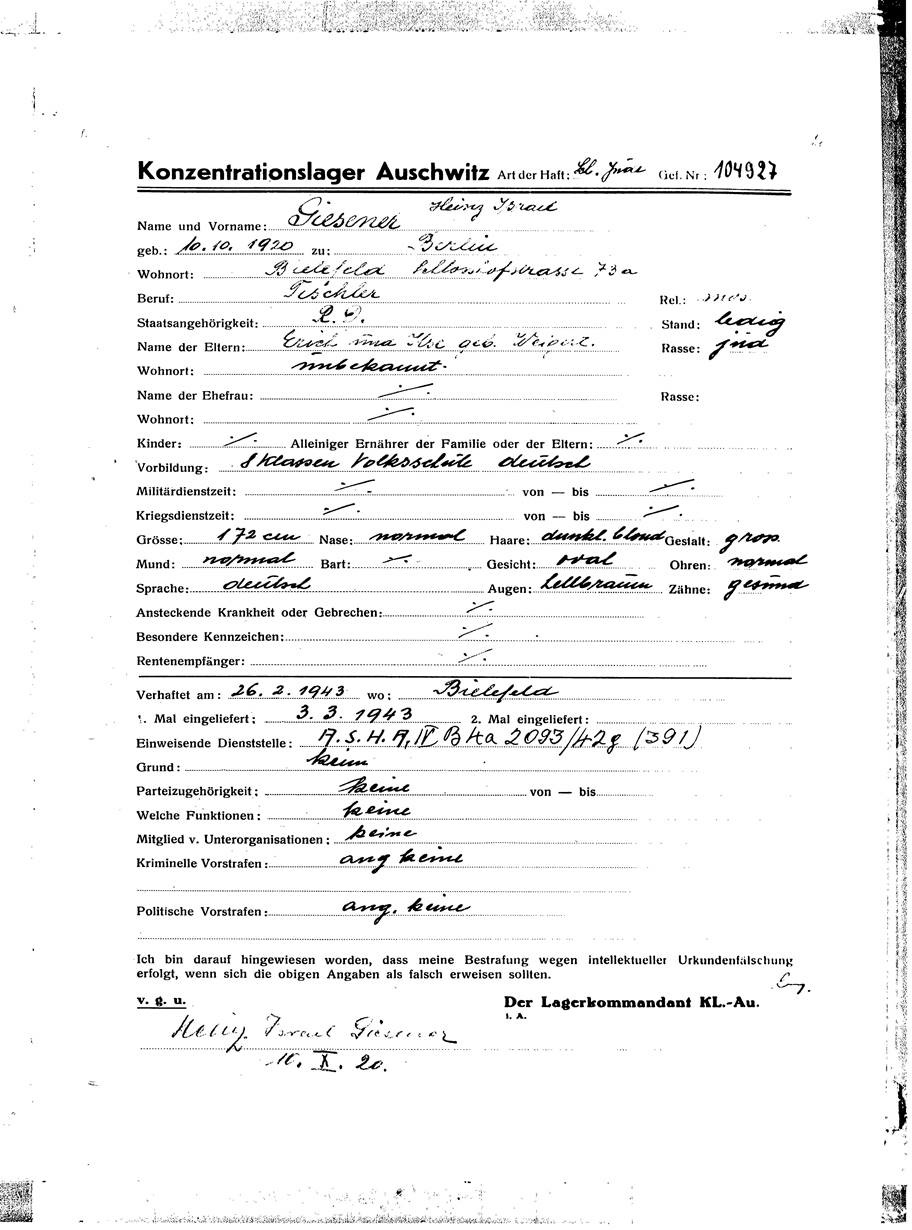 Konzentrationslager Auschwitz Art der Haft: Gef. Nr.: 104927
Heinz Israel
Name und Vorname: Giesener
geb.: 10.10.1920 zu: Berlin
Wohnort: Bielefeld 73a
Beruf: Tischler Rel.: mos.
Staatsangehörigkeit: R.D. Stand: ledig
Name der Eltern: Erich und geb. Rasse: jüd
Wohnort: unbekannt.
Name der Ehefrau: ./. Rasse:
Wohnort: ./.
Kinder: ./. Alleiniger Ernährer der Familie oder der Eltern: ./.
Vorbildung: 8 Klassen Volksschule deutsch
Militärdienstzeit: ./. von — bis ./.
Kriegsdienstzeit: ./. von — bis ./.
Grösse: 172 cm Nase: normal Haare: dunkl. blond Gestalt: gross
Mund: normal Bart: ./. Gesicht: oval Ohren: normal
Sprache: deutsch Augen: hellbraun Zähne: gesund
Ansteckende Krankheit oder Gebrechen: ./.
Besondere Kennzeichen: ./.
Rentenempfänger: ./.
Verhaftet am: 26.2.1943 wo: Bielefeld
1. Mal eingeliefert: 3.3.1943 2. Mal eingeliefert:
Einweisende Dienststelle: R.S.H.A, IV B 4a 2093/42g (391)
Grund:
Parteizugehörigkeit: keine von — bis
Welche Funktionen: keine
Mitglied v. Unterorganisationen: keine
Kriminelle Vorstrafen: ang keine
Politische Vorstrafen: ang. keine
Ich bin darauf hingewiesen worden, dass meine Bestrafung wegen intellektueller Urkundenfälschung
erfolgt, wenn sich die obigen Angaben als falsch erweisen sollten.
v. g. u. Der Lagerkommandant KL.-Au.
i. A.
Heinz Israel Giesener
10. X. 20.